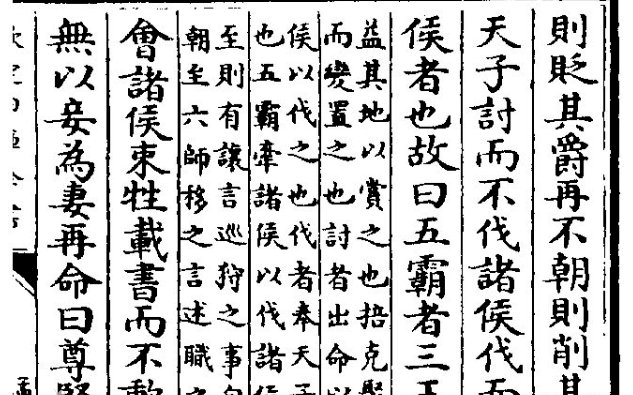 則貶其爵再不朝則削其
天子討而不伐諸侯伐而
侯者也故曰五霸者三王
益其地以賞之也掊克聚
而變置之也討者出命以
侯以伐之也伐者奉天子
也五霸牽諸侯以伐諸侯
至則有讓言巡狩之事自
朝至六師移之言述職之
會諸侯束牲載書而不歃
無以妾為妻再命曰尊賢